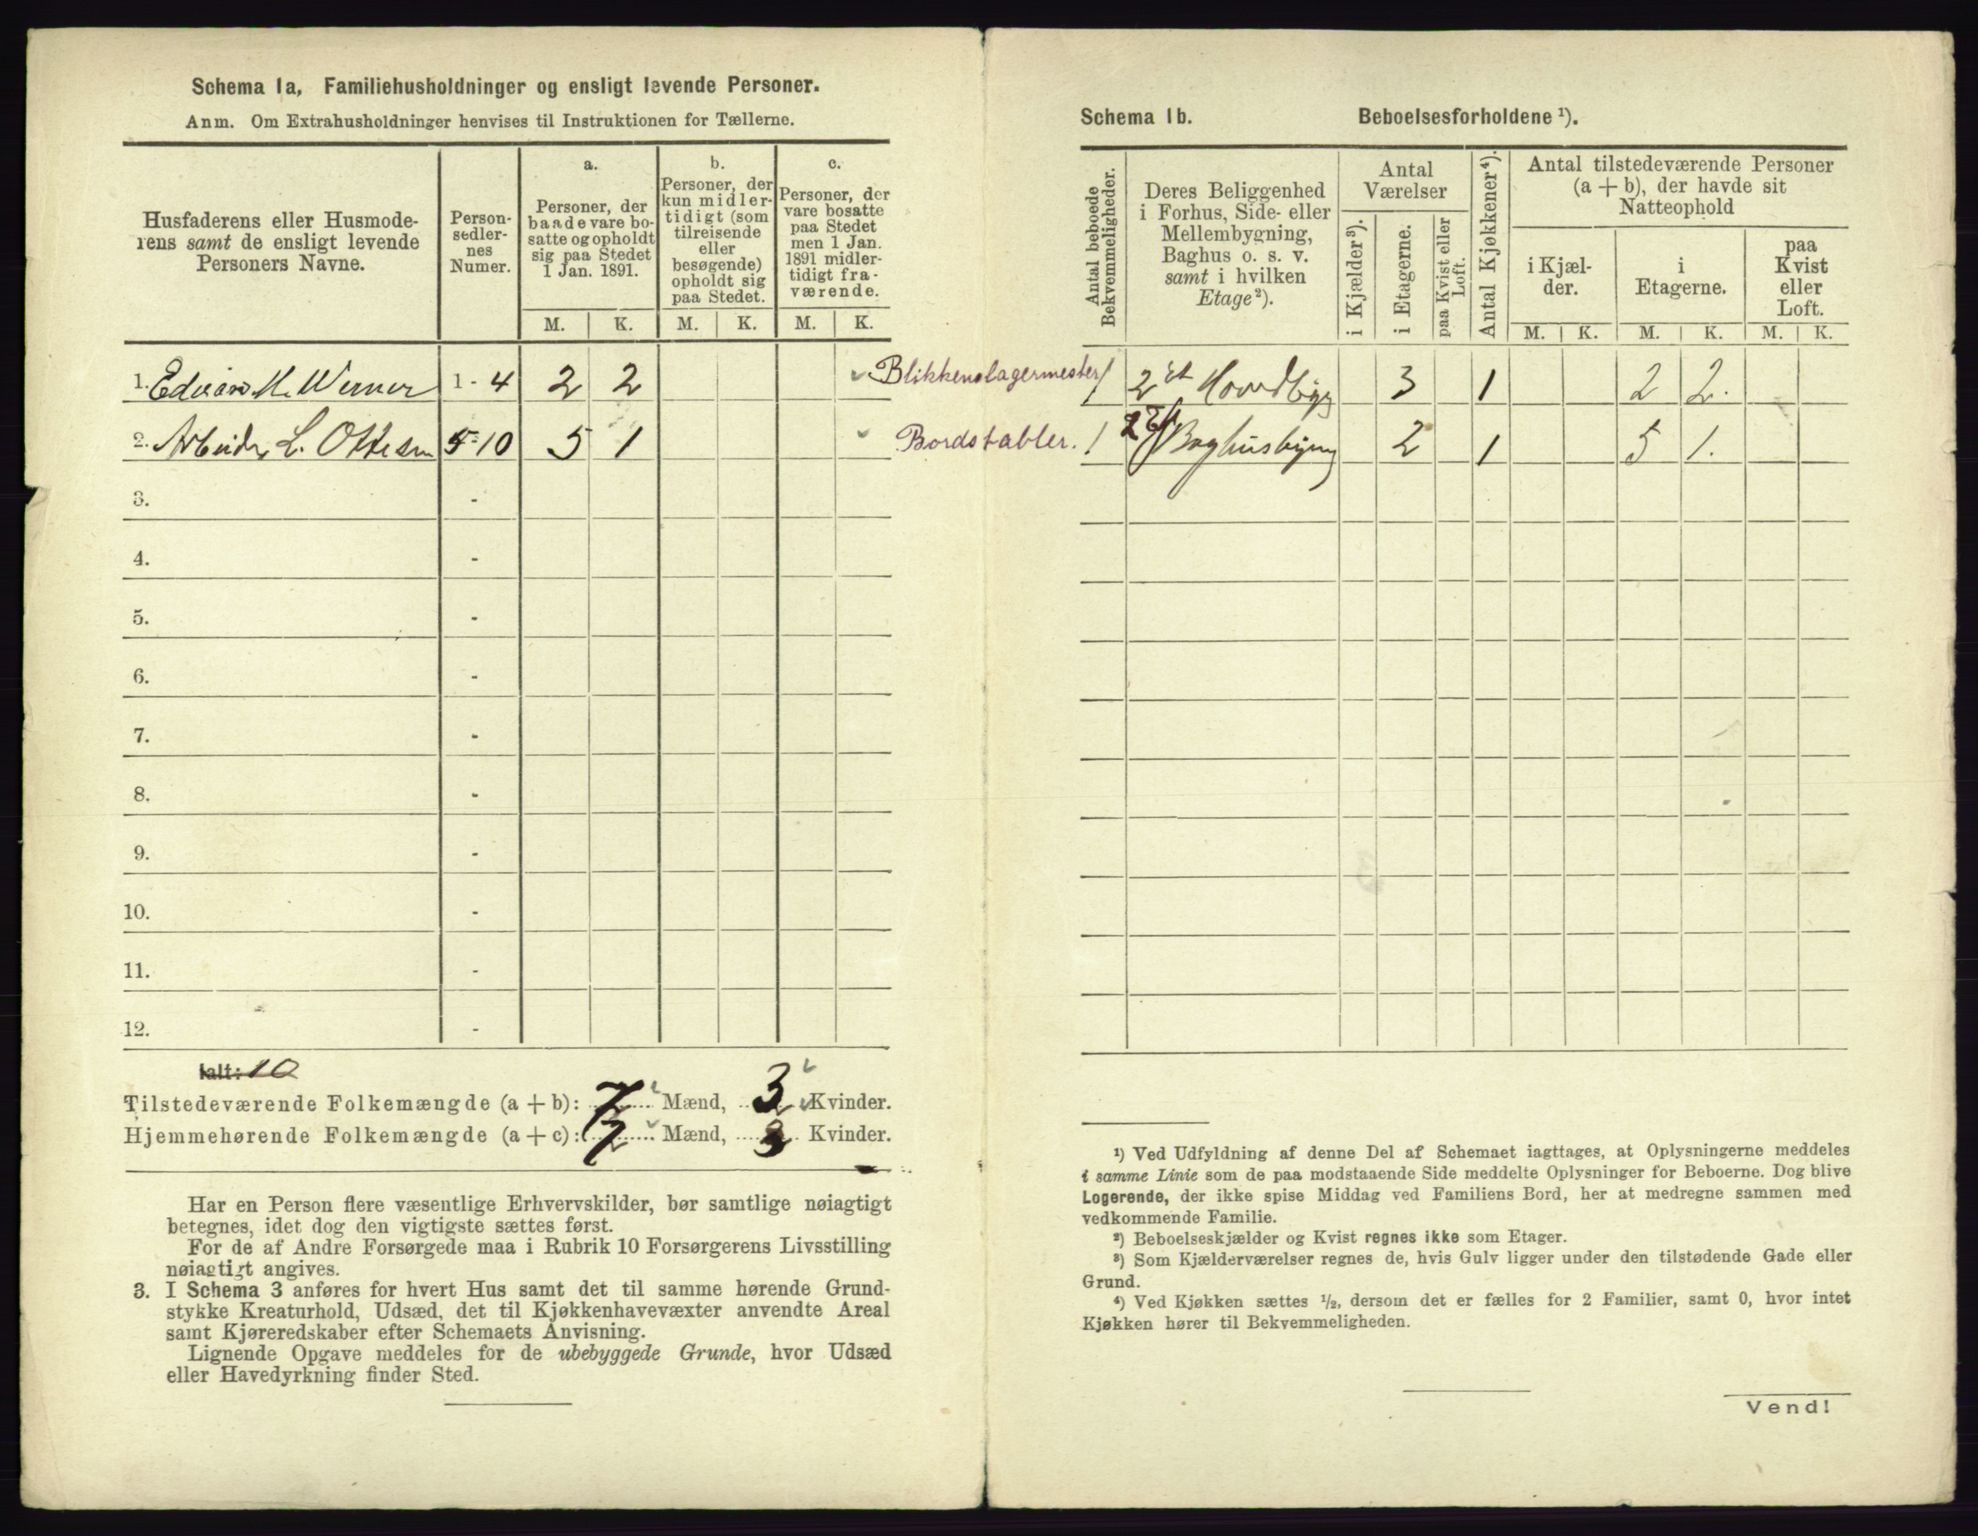 Schema 1a, Familiehusholdninger og ensligt levende Personer.
Anm. Om Extrahusholdninger henvises til Instruktionen for Tællerne.
Husfaderens eller Husmoderens samt de ensligt levende Personers Navne.
Personsedlernes Numer.
a.
Personer, der baade vare bosatte og opholdt sig paa Stedet 1 Jan. 1891.
b.
Personer, der kun midlertidigt (som tilreisende eller besøgende) opholdt sig paa Stedet.
c.
Personer, der vare bosatte paa Stedet men 1 Jan. 1891 midlertidigt fraværende.
M. K. M. K. M. K.
1. Edvard M. Werner 1 - 4 2 2 Blikkenslagermester
2. Arbeider L. Ottesen 5-10 5 1 Bordstabler.
3. -
4. -
5. -
6. -
7. -
8. -
9. -
10. -
11. -
12. -
Ialt: 10
Tilstedeværende Folkemængde (a + b): 7 Mænd, 3 Kvinder.
Hjemmehørende Folkemængde (a + c): 7 Mænd, 3 Kvinder.
Har en Person flere væsentlige Erhvervskilder, bør samtlige nøiagtigt
betegnes, idet dog den vigtigste sættes først.
For de af Andre Forsørgede maa i Rubrik 10 Forsørgerens Livsstilling
nøiagtigt angives.
3. I Schema 3 anføres for hvert Hus samt det til samme hørende Grund-
stykke Kreaturhold, Udsæd, det til Kjøkkenhavevæxter anvendte Areal
samt Kjøreredskaber efter Schemaets Anvisning.
Lignende Opgave meddeles for de ubebyggede Grunde, hvor Udsæd
eller Havedyrkning finder Sted.
Schema 1b. Beboelsesforholdene ¹).
Antal beboede Bekvemmeligheder.
Deres Beliggenhed i Forhus, Side- eller Mellembygning, Baghus o. s. v. samt i hvilken Etage²).
Antal Værelser
i Kjælder³).
i Etagerne.
paa Kvist eller Loft.
Antal Kjøkkener⁴).
Antal tilstedeværende Personer (a + b), der havde sit Natteophold
i Kjælder.
i Etagerne.
paa Kvist eller Loft.
M. K. M. K. M. K.
1 2 Et Hovedbyg 3 1 2 2.
1 2 Et Baghusbygng 2 1 5 1.
¹) Ved Udfyldning af denne Del af Schemaet iagttages, at Oplysningerne meddeles
i samme Linie som de paa modstaaende Side meddelte Oplysninger for Beboerne. Dog blive
Logerende, der ikke spise Middag ved Familiens Bord, her at medregne sammen med
vedkommende Familie.
²) Beboelseskjælder og Kvist regnes ikke som Etager.
³) Som Kjælderværelser regnes de, hvis Gulv ligger under den tilstødende Gade eller
Grund.
⁴) Ved Kjøkken sættes ½, dersom det er fælles for 2 Familier, samt 0, hvor intet
Kjøkken hører til Bekvemmeligheden.
Vend!